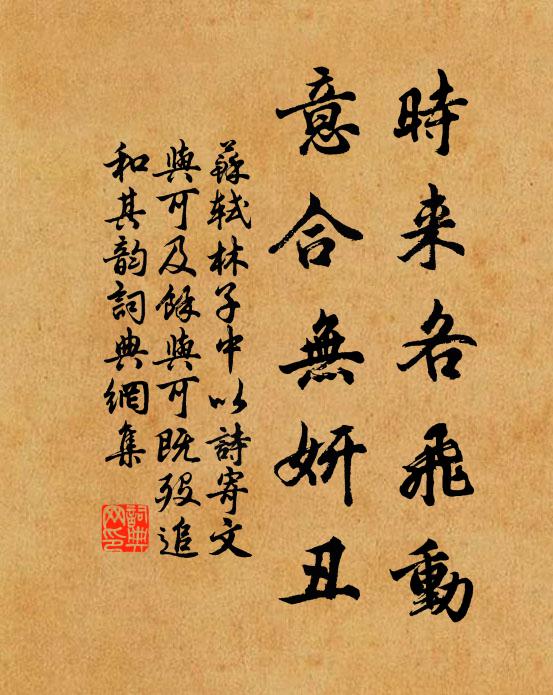 時来各飛動
意合無妍丑
蘇軾林子中以詩寄文
與可及餘與可既歿追
和其韵詞典網集
詞典
网印